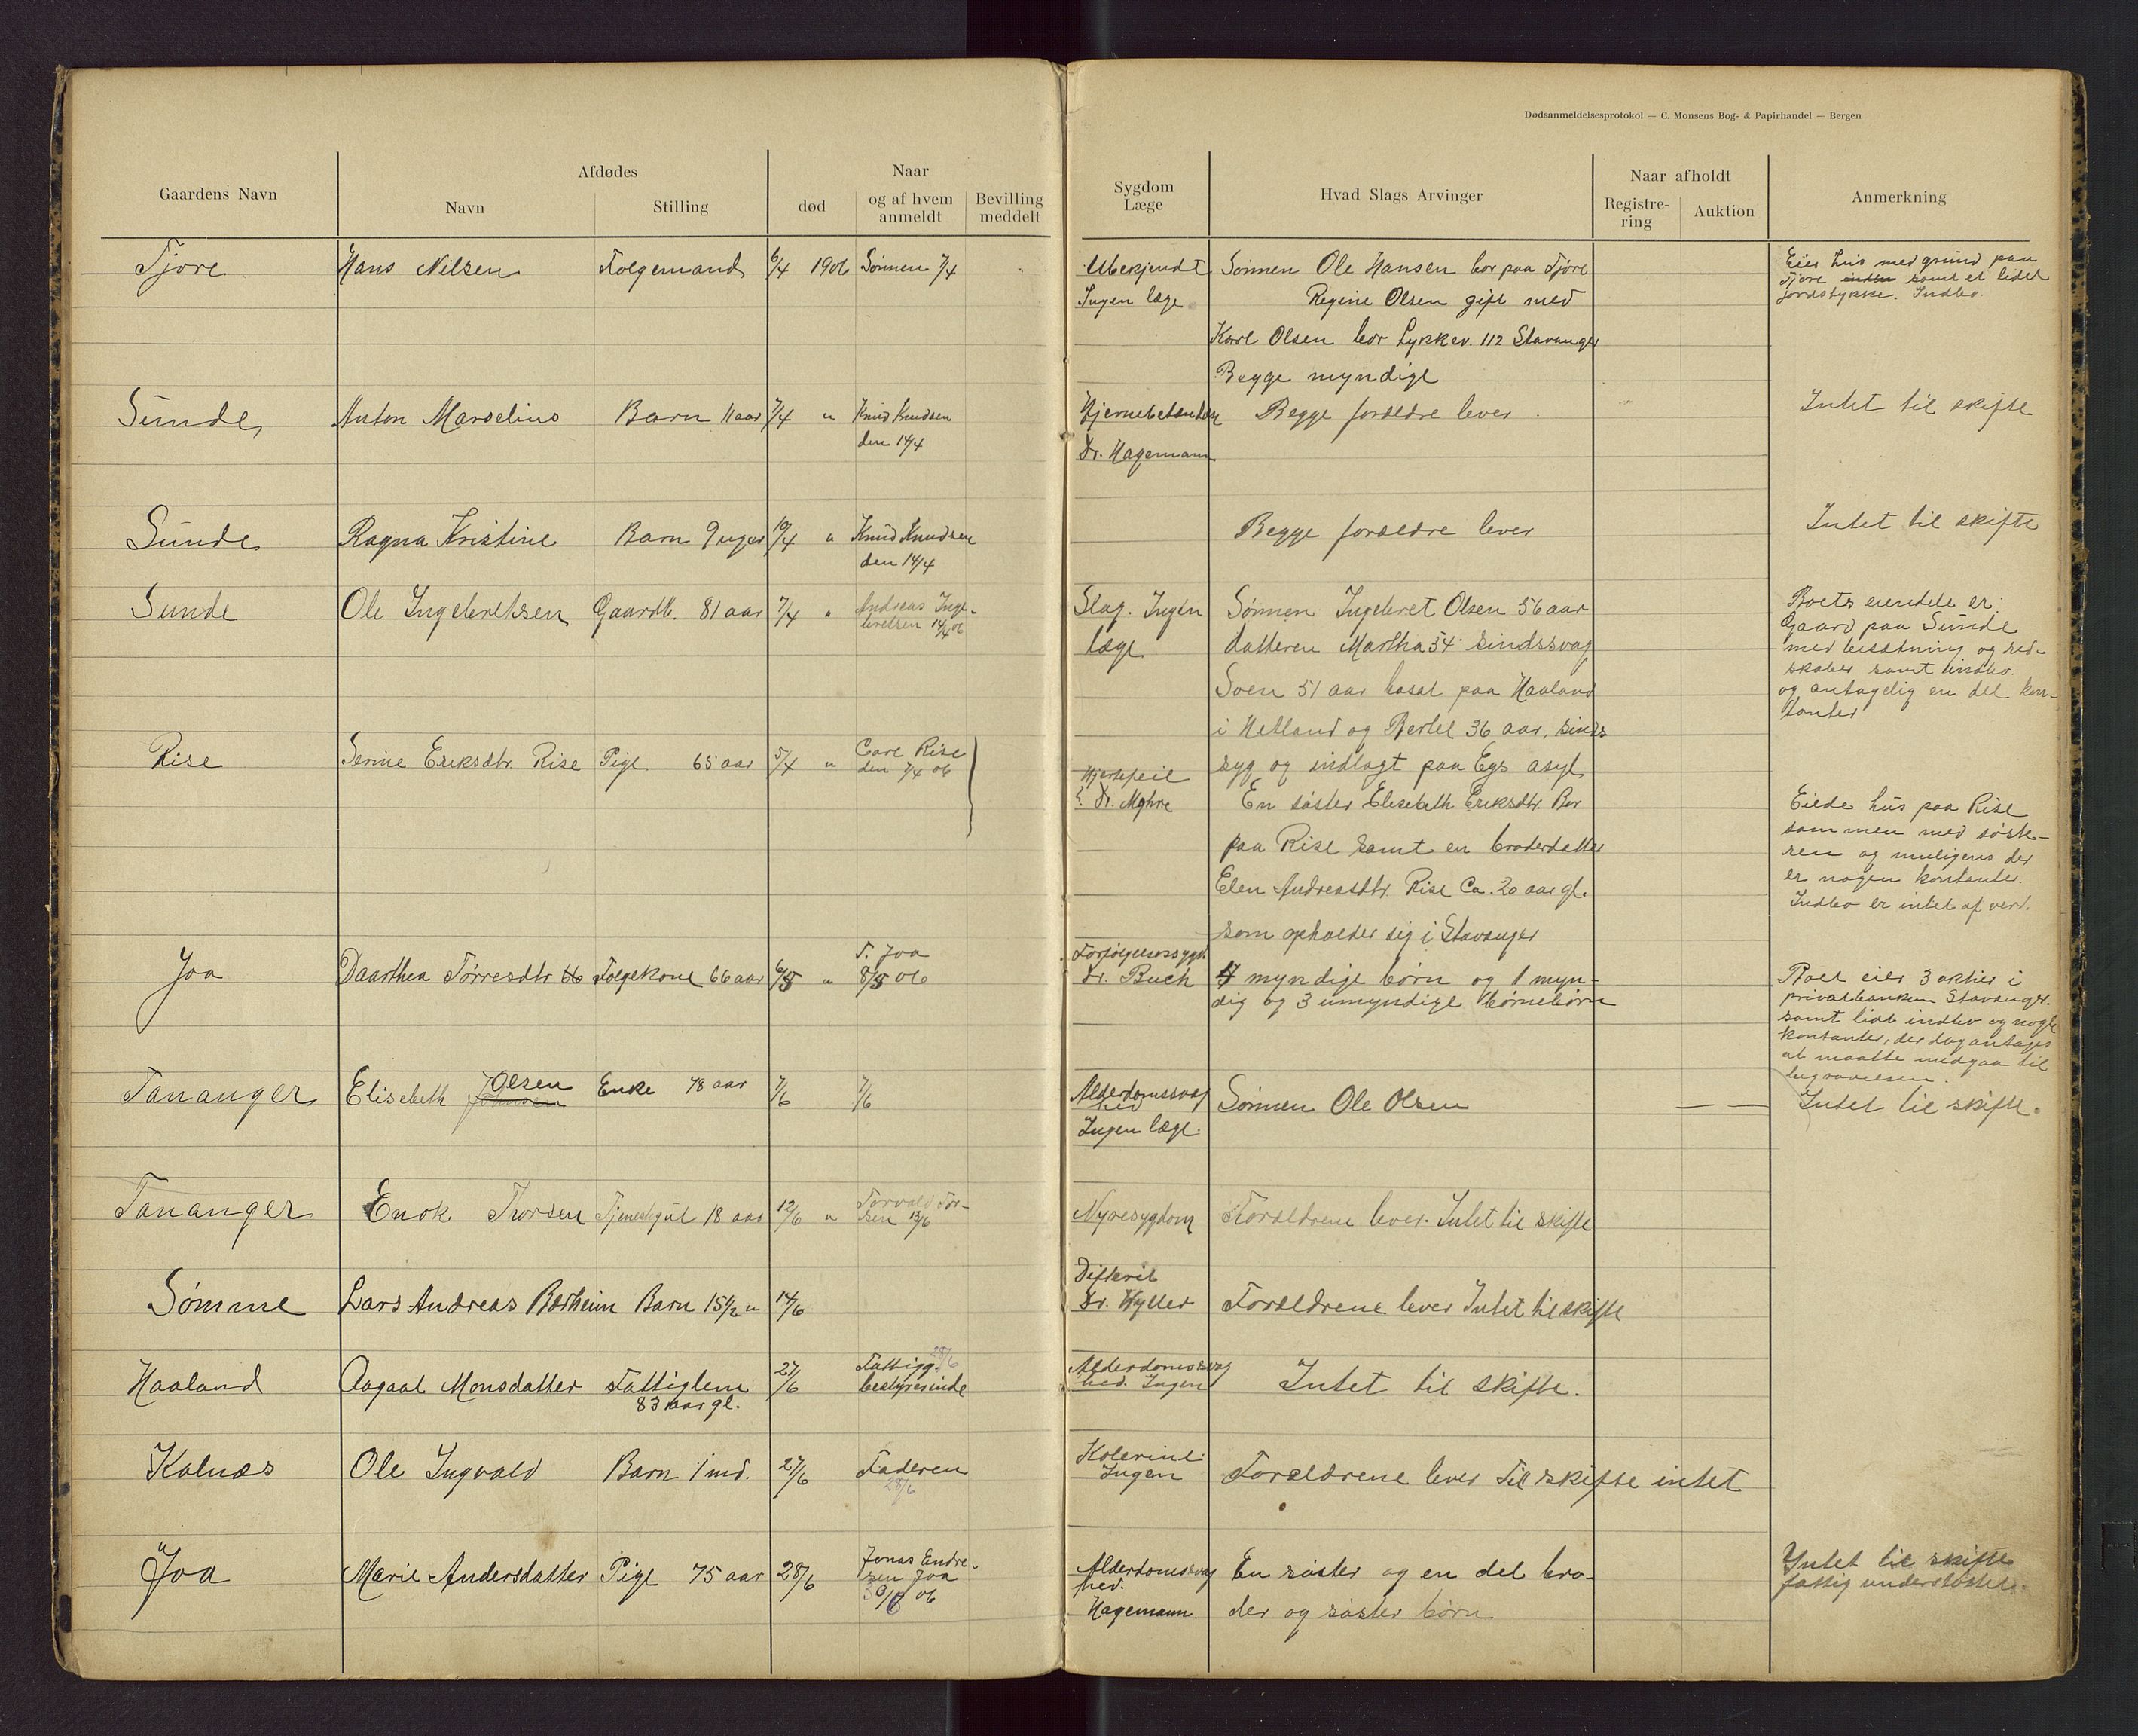 Dødsanmeldelsesprotokol — C. Monsens Bog- & Papirhandel — Bergen
Gaardens Navn
Afdødes
Navn
Stilling
Naar
død
og af hvem
anmeldt
Bevilling
meddelt
Sygdom
Læge
Hvad Slags Arvinger
Naar afholdt
Registre-
ring
Auktion
Anmerkning
Tjore Hans Nilsen Folgemand 6/4 1906 Sønnen 7/4
Ubekjendt
Ingen læge
Sønnen Ole Hansen bor paa Tjore
Regine Olsen gift med
Karl Olsen bor Lykkev. 112 Stavanger
Begge myndige
Eier hus med grund paa
Tjore samt et lidet
jordstykke. Indbo.
Sunde Anton Marselius Barn 11 aar 7/4 " Knud Knudsen
den 14/4
Hjernebetændelse
Dr. Hagemann
Begge forældre lever
Intet til skifte
Sunde Ragna Kristine Barn 9 uger 10/4 " Knud Knudsen
den 14/4
Begge forældre lever
Intet til skifte
Sunde Ole Ingebretsen Gaardb. 81 aar 7/4 " Andreas Inge-
bretsen 14/4 06
Slag. Ingen
læge
Sønnen Ingebret Olsen 56 aar
datteren Martha 54 sindssvag
Sven 51 aar bosat paa Haaland
i Hetland og Bertel 36 aar, sinds
syg og indlagt paa Egs asyl
Boets eiendele er:
Gaard paa Sunde
med besætning og red-
skaber samt indbo.
og antagelig en del kon-
tanter
Rise Serine Eriksdtr. Rise Pige 65 aar 5/4 " Carl Rise
den 7/4 06
Hjertefeil
Dr. Myhre
En søster Elisebeth Eriksdtr. Bor
paa Rise samt en broderdatter
Elen Andreasdtr. Rise Ca. 20 aar gl.
som opholder sig i Stavanger
Eiede hus paa Rise
sammen med søste-
ren og muligens der
er nogen kontanter.
Indbo er intet af verd.
Joa Daarthea Tørresdtr 66 Folgekone 66 aar 6/5 " T. Joa
8/5 06
Dr. Buch
4 myndige børn og 1 myn-
dig og 3 umyndige børnebørn
Boet eier 3 aktier i
privatbanken Stavanger.
samt lidt indbo og nogle
kontanter, der dog antages
at maatte medgaa til
begravelsen.
Tananger Elisebeth Johnsen Olsen Enke 78 aar 7/6 7/6
Alderdomssvag
hed
Ingen læge.
Sønnen Ole Olsen
— —
Intet til skifte.
Tananger Enok Thorsen Tjenestgut 18 aar 12/6 " Torvald Tor-
sen 13/6
Nyresygdom
Forældrene lever. Intet til skifte
Sømme Lars Andreas Barheim Barn 15 1/2 " 14/6
Difterit
Dr. Hylled
Forældrene lever Intet til skifte
Haaland Aagaat Monsdatter Fattiglem
83 aar gl.
27/6 Fattigg. 28/6
bestyrerinde
Alderdomssvag
hed. Ingen
Intet til skifte.
Kalnæs Ole Ingvald Barn 1 md. 27/6 Faderen
28/6
Kolerine.
Ingen
Forældrene lever Til skifte intet
Joa Marie Andersdatter Pige 75 aar 28/6 Jonas Endre-
sen Joa
30/6 06
Alderdomssvag
hed.
Hagemann.
En søster og en del bro-
der og søster børn
Intet til skifte
fattig understøttet.